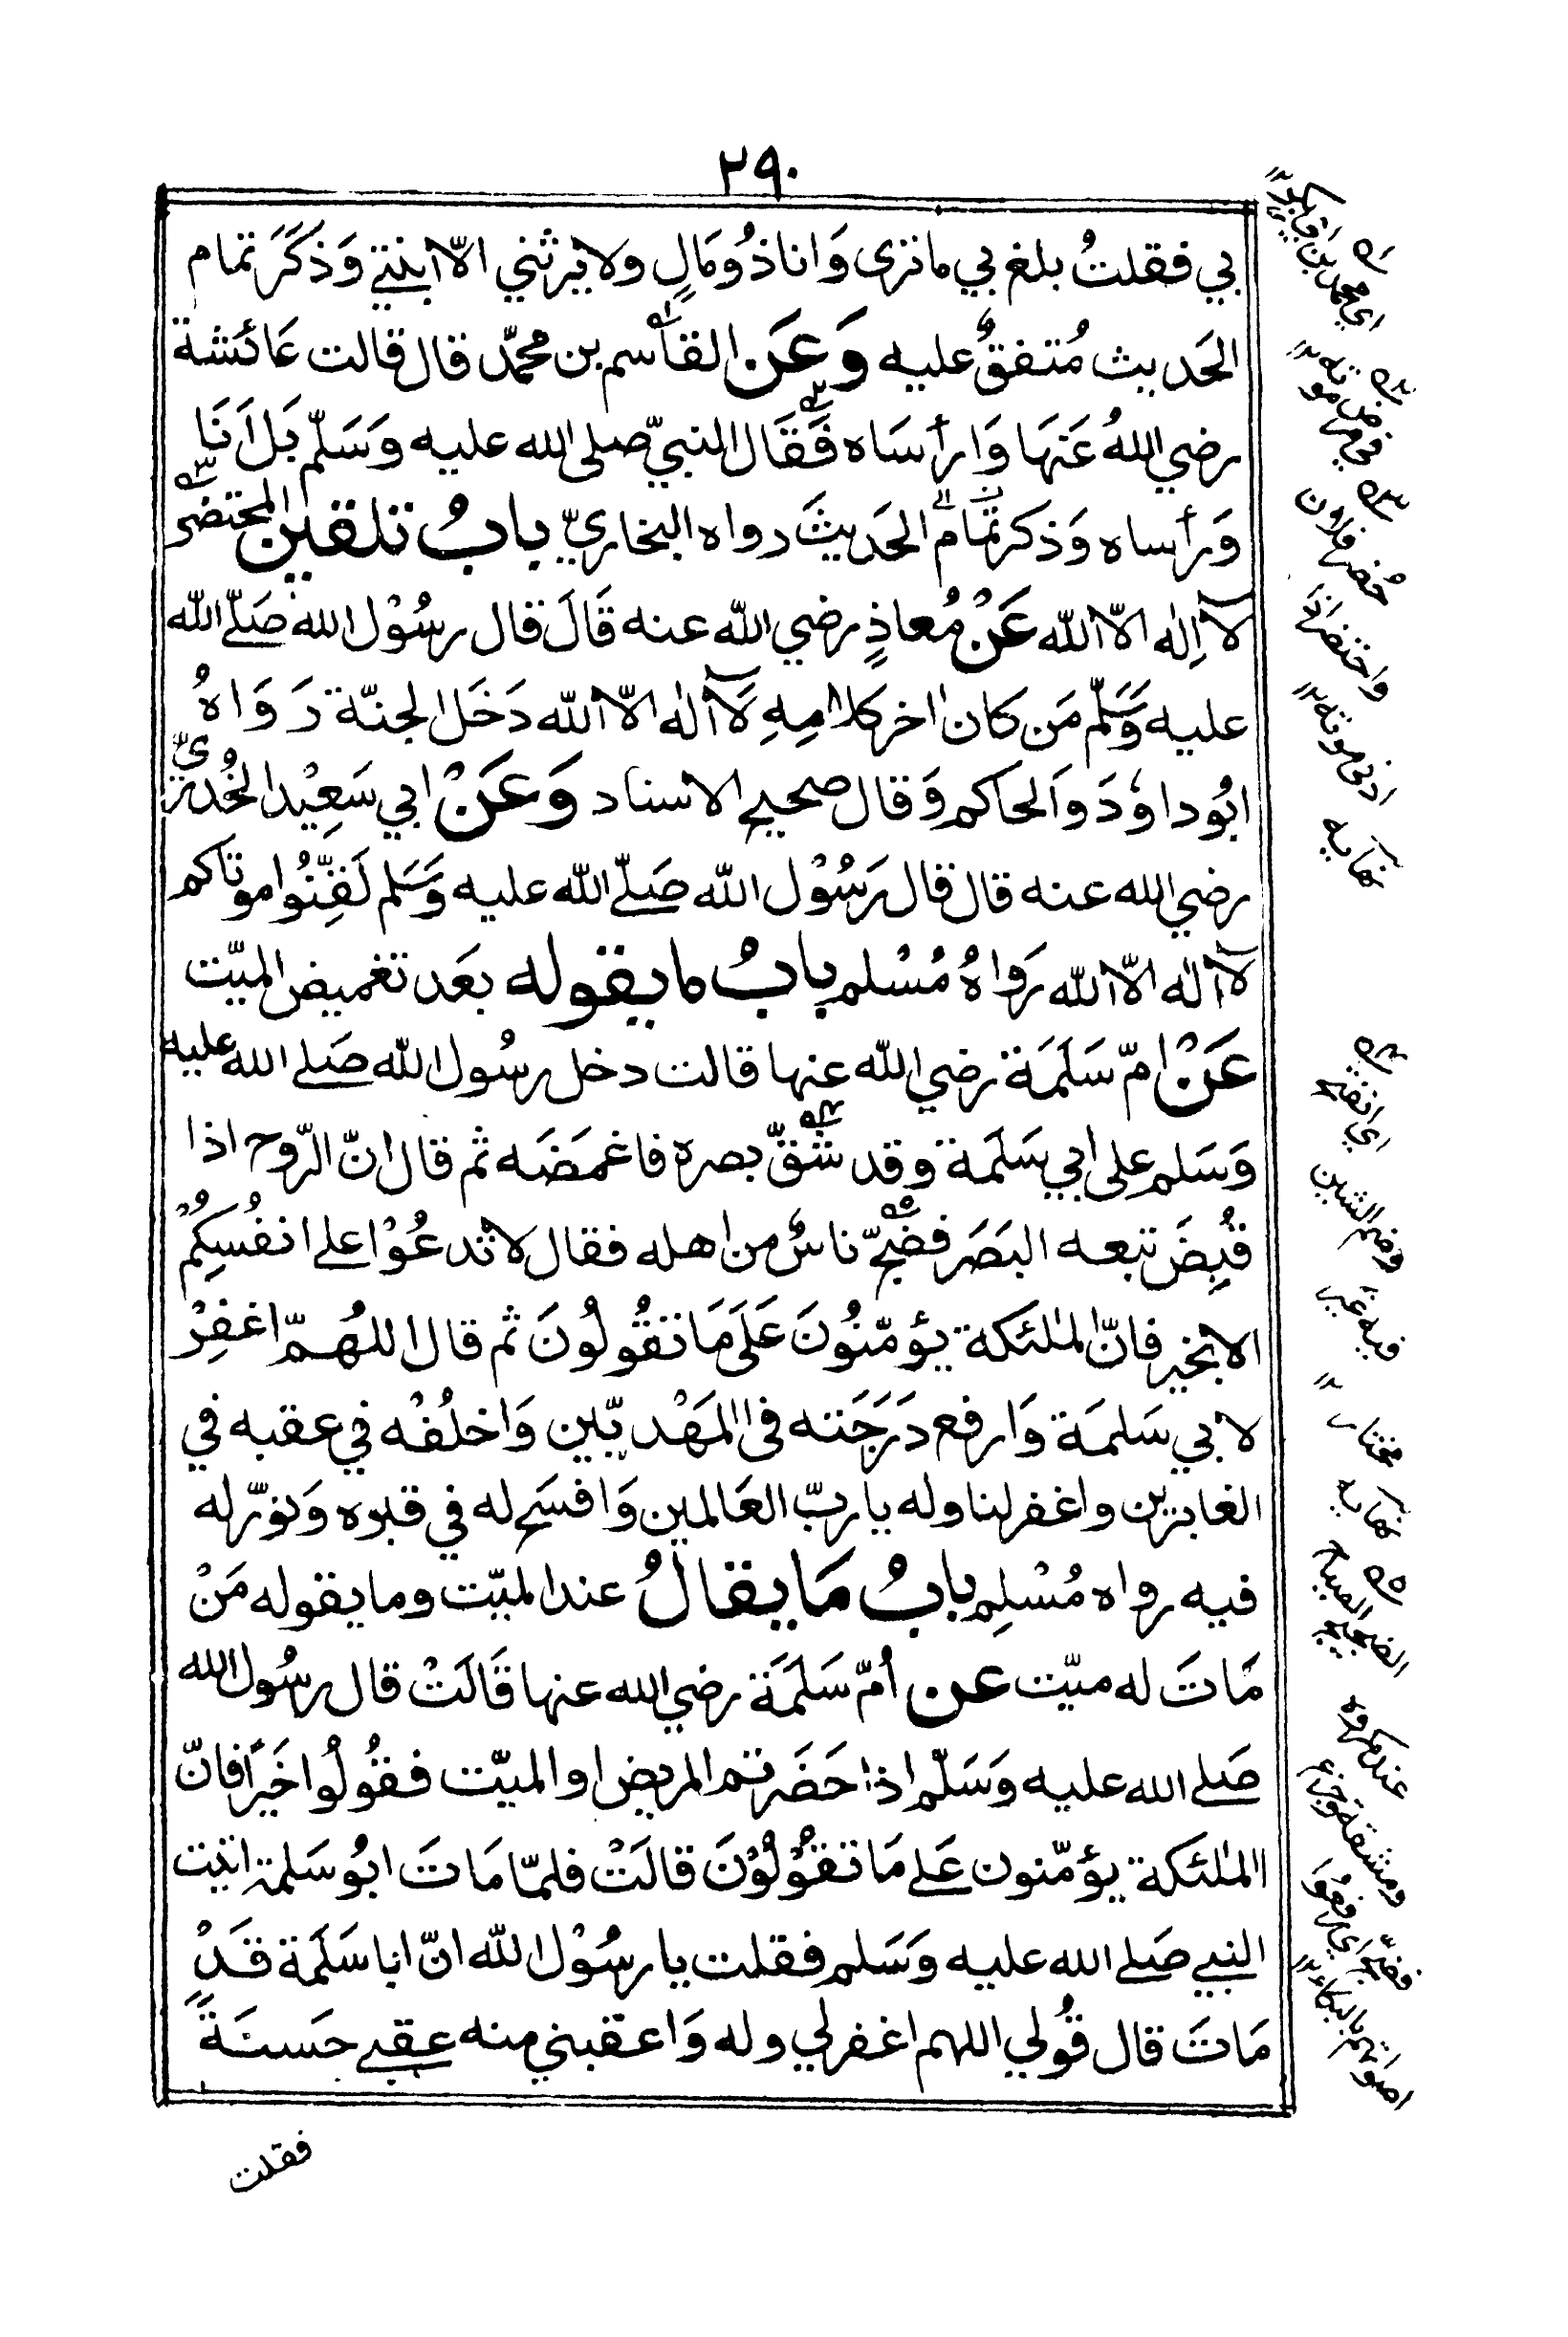 ٢٩٠
بي فقلتُ بلغ بي ما ترى وَانا ذُو مَالٍ ولا يرثني الّا ابنتي وَذكَرَ تمام
الحَديث مُتفقٌ عليه وَعَن القاسم بن محمّد قال قالت عَائشة
رضي اللهُ عَنهَا وَارأسَاه فَقَال النبيّ صلى الله عليه وَسَلّم بَل اَنَا
وَرأساه وَذكر تمامَ الحَديثَ رواه البخاريّ بابُ تلقين المحتضر
لآ اِلٰه الّا اللّه عَنْ مُعاذٍ رضي اللّه عنه قَالَ قال رسُوْل اللّه صَلّے اللّه
عليه وَسَلّم مَن كان اٰخر كلامِهِ لَآ اله الّا اللّه دَخَل الجنّة رَوَاهُ
ابُو داوٗدَ وَالحاكم وَقال صحيح الاسناد وَعَنْ ابي سَعِيْد الخُدريّ
رضي الله عنه قال قال رَسُوْل اللّه صَلّے اللّه عليه وَسَلم لَقِّنُوا موتاكم
لآ اله الّا اللّه رَواهُ مُسْلم بابُ ما يقوله بعَد تغميض الميّت
عَنْ امّ سَلَمَة رضي اللّه عنها قالت دخل رسُول اللّه صَلے الله عليه
وَسَلم على ابي سَلَمة وقد شقّ بصره فاغمَضَه ثم قال انّ الرّوح اذا
قُبِضَ تبعه البَصَر فضجّ ناسٌ من اهله فقال لا تدعُوْا علے انفُسِكُمْ
الا بخير فانّ الملٰئكة يؤمّنُونَ عَلَى مَا تقُولُونَ ثم قال اللهُمّ اغفِرْ
لابي سَلمَة وَارفع دَرَجَته فى المَهْديّين وَاخلُفْه في عقبه في
الغابرين واغفر لنا وله يا ربّ العَالمين وَافسَح له في قبره وَنوّر له
فيه رواه مُسْلِم بابُ مَا يقالُ عند الميّت وما يقوله مَنْ
مَاتَ له ميّت عن اُمّ سَلَمَة رضي الله عنها قَالَتْ قال رسُول الله
صَلے الله عليه وَسَلّم اذا حَضَرتم المريض او الميّت فقُولُوا خَيرًا فانّ
الملٰئكة يؤمّنون عَلے مَا تقُوْلُوْنَ قالَتْ فلمّا مَاتَ ابُو سَلمة اتيت
النبي صَلے الله عليه وَسَلم فقلت يا رسُوْل اللّه انّ ابا سَلَمة قَدْ
مَاتَ قال قُولي اللهم اغفر لي وله وَاعقبني منه عقبے حَسنَةً
فقلت
ه١
اي محمد بن ابي بكر ١٢
ه٢
في مرض موته ١٢
ه٣
حُضر فلان
واحتضر اذا
دنى موته ١٢
نهايه
ه٤
اي انفتح
وضم الشين
فيه غير
مختار ١٢
نهايه
ه٥
الضجيج الصياح
عند مكروه
ومشقة وجزع
فضجّوا اي رفعوا
اصواتهم بالبكاء ١٢